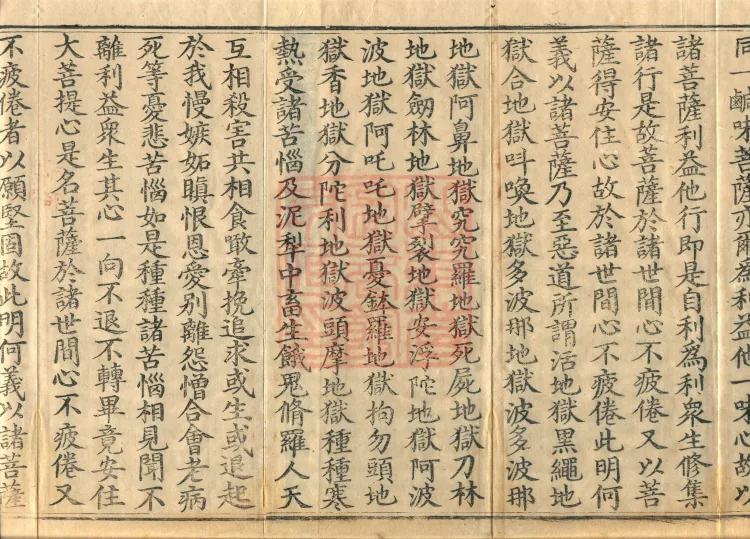 同一鹹味菩薩亦爾為利益他一味心故以
諸菩薩利益他行即是自利為利衆生修集
諸行是故菩薩於諸世間心不疲倦又以菩
薩得安住心故於諸世間心不疲倦此明何
義以諸菩薩乃至惡道所謂活地獄黑繩地
獄合地獄叫喚地獄多波那地獄波多波那
地獄阿鼻地獄究究羅地獄死屍地獄刀林
地獄劒林地獄擘裂地獄安浮陀地獄阿波
波地獄阿吒吒地獄憂鉢羅地獄拘勿頭地
獄香地獄分陀利地獄波頭摩地獄種種寒
熱受諸苦惱及泥犁中畜生餓鬼脩羅人天
互相殺害共相食噉牽挽追求或生或退起
於我慢嫉妬瞋恨恩愛別離怨憎合會老病
死等憂悲苦惱如是種種諸苦惱相見聞不
離利益衆生其心一向不退不轉畢竟安住
大菩提心是名菩薩於諸世間心不疲倦又
不疲倦者以願堅固故此明何義以諸菩薩